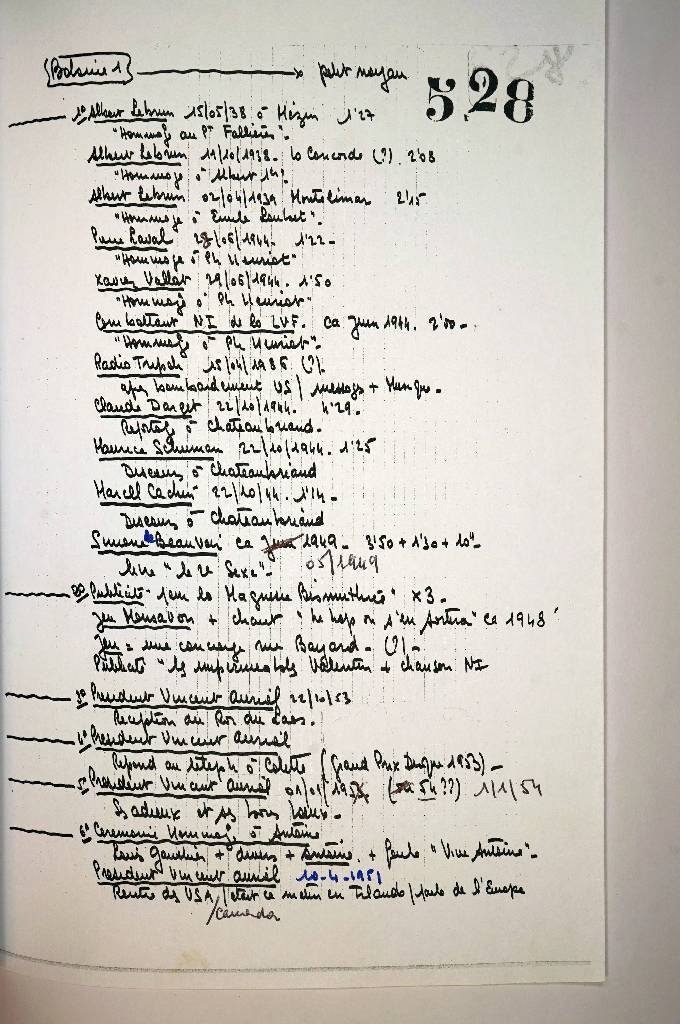 Bobine 1 → petit noyau
528
1º Albert Lebrun 15/05/38 à Mézin 1'27
"Hommage au Pt Fallières".
Albert Lebrun 11/10/1938. La Concorde (?) 2'08
"Hommage à Albert 1er".
Albert Lebrun 02/04/1939 Montélimar 2'15
"Hommage à Emile Loubet".
Pierre Laval 28/06/1944. 1'22-
"Hommage à Ph Henriot"
Xavier Vallat 29/06/1944. 1'50
"Hommage à Ph Henriot"
Combattant NI de la LVF. Ca Juin 1944. 2'00-
"Hommage à Ph Henriot".
Radio Tripoli 15/04/1986 (?).
après bombardement US / message + Musique.
Claude Darget 22/10/1944. 4'29.
Reportage à Chateaubriand.
Maurice Schuman 22/10/1944. 1'25
Discours à Chateaubriand
Marcel Cachin 22/10/44. 1'14-
Discours à Chateaubriand
Simone de Beauvoir ca Juin 1949- 3'50+1'30+10"-
livre "le 2e Sexe"- 05/1949
2º Publicité pour la Magnésie Bismurée" x3-
Jeu Monsavon + chant "he hop on s'en sortira" Ca 1948
Jeu = une concierge rue Bayard- (?)-
Publicité "les imperméables Valentin + chanson NI
3º President Vincent Auriol 22/10/53
Reception du Roi du Laos.
4º President Vincent Auriol
Repond au téléph à Colette (Grand Prix Disque 1953)-
5º President Vincent Auriol 01/01/1953 (ou 54??) 1/1/54
Ses adieux et ses bons voeux-
6º Ceremonie Hommage à Antoine
Louis Gauthier + divers + Antoine. + foule "Vive Antoine"-
President Vincent Auriol 10-4-1951
Rentre des USA / était ce matin en Irlande / parle de l'Europe
/Canada